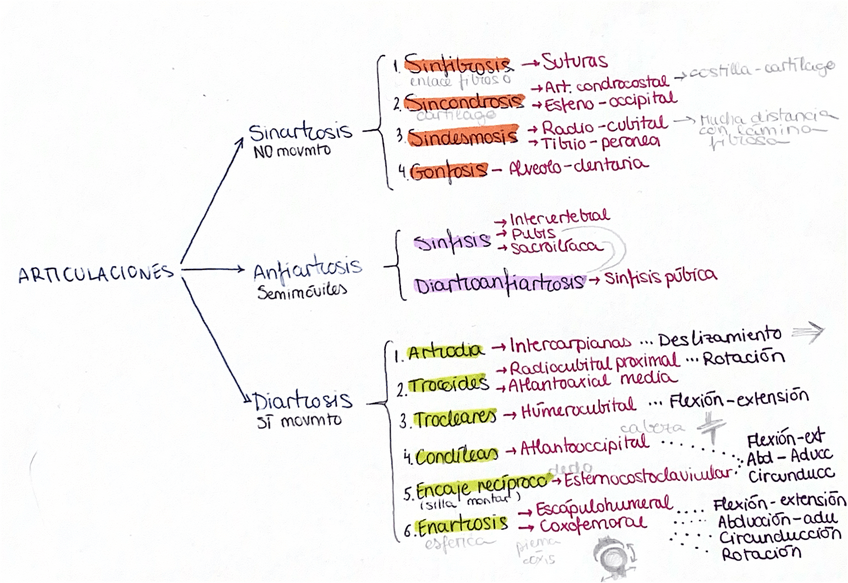 ARTICULACIONES
Sinartrosis
NO movmto
1. Sinfibrosis → Suturas
enlace fibroso
2. Sincondrosis → Art. condrocostal → costilla-cartílago
cartílago → Esfeno-occipital
3. Sindesmosis → Radio-cubital → Mucha distancia
→ Tibio-peronea con lámina
fibrosa
4. Gonfosis - Alveolo-dentaria
Anfiartrosis
Semimóviles
Sínfisis → Intervertebral
→ Pubis
→ Sacroilíaca
Diartroanfiartrosis → Sínfisis púbica
Diartrosis
SÍ movmto
1. Artrodia → Intercarpianas ... Deslizamiento ⇒
2. Trocoides → Radiocubital proximal ... Rotación
→ Atlantoaxial media
3. Trocleares → Húmerocubital ... Flexión-extensión
cabeza
4. Condíleas → Atlantooccipital ...... Flexión-ext
Abd-Aducc
Circunducc
dedo
5. Encaje recíproco → Esternocostoclavicular
(silla montar)
6. Enartrosis → Escápulohumeral .... Flexión-extensión
→ Coxofemoral .... Abducción-adu
esférica pierna Circunducción
Rotación